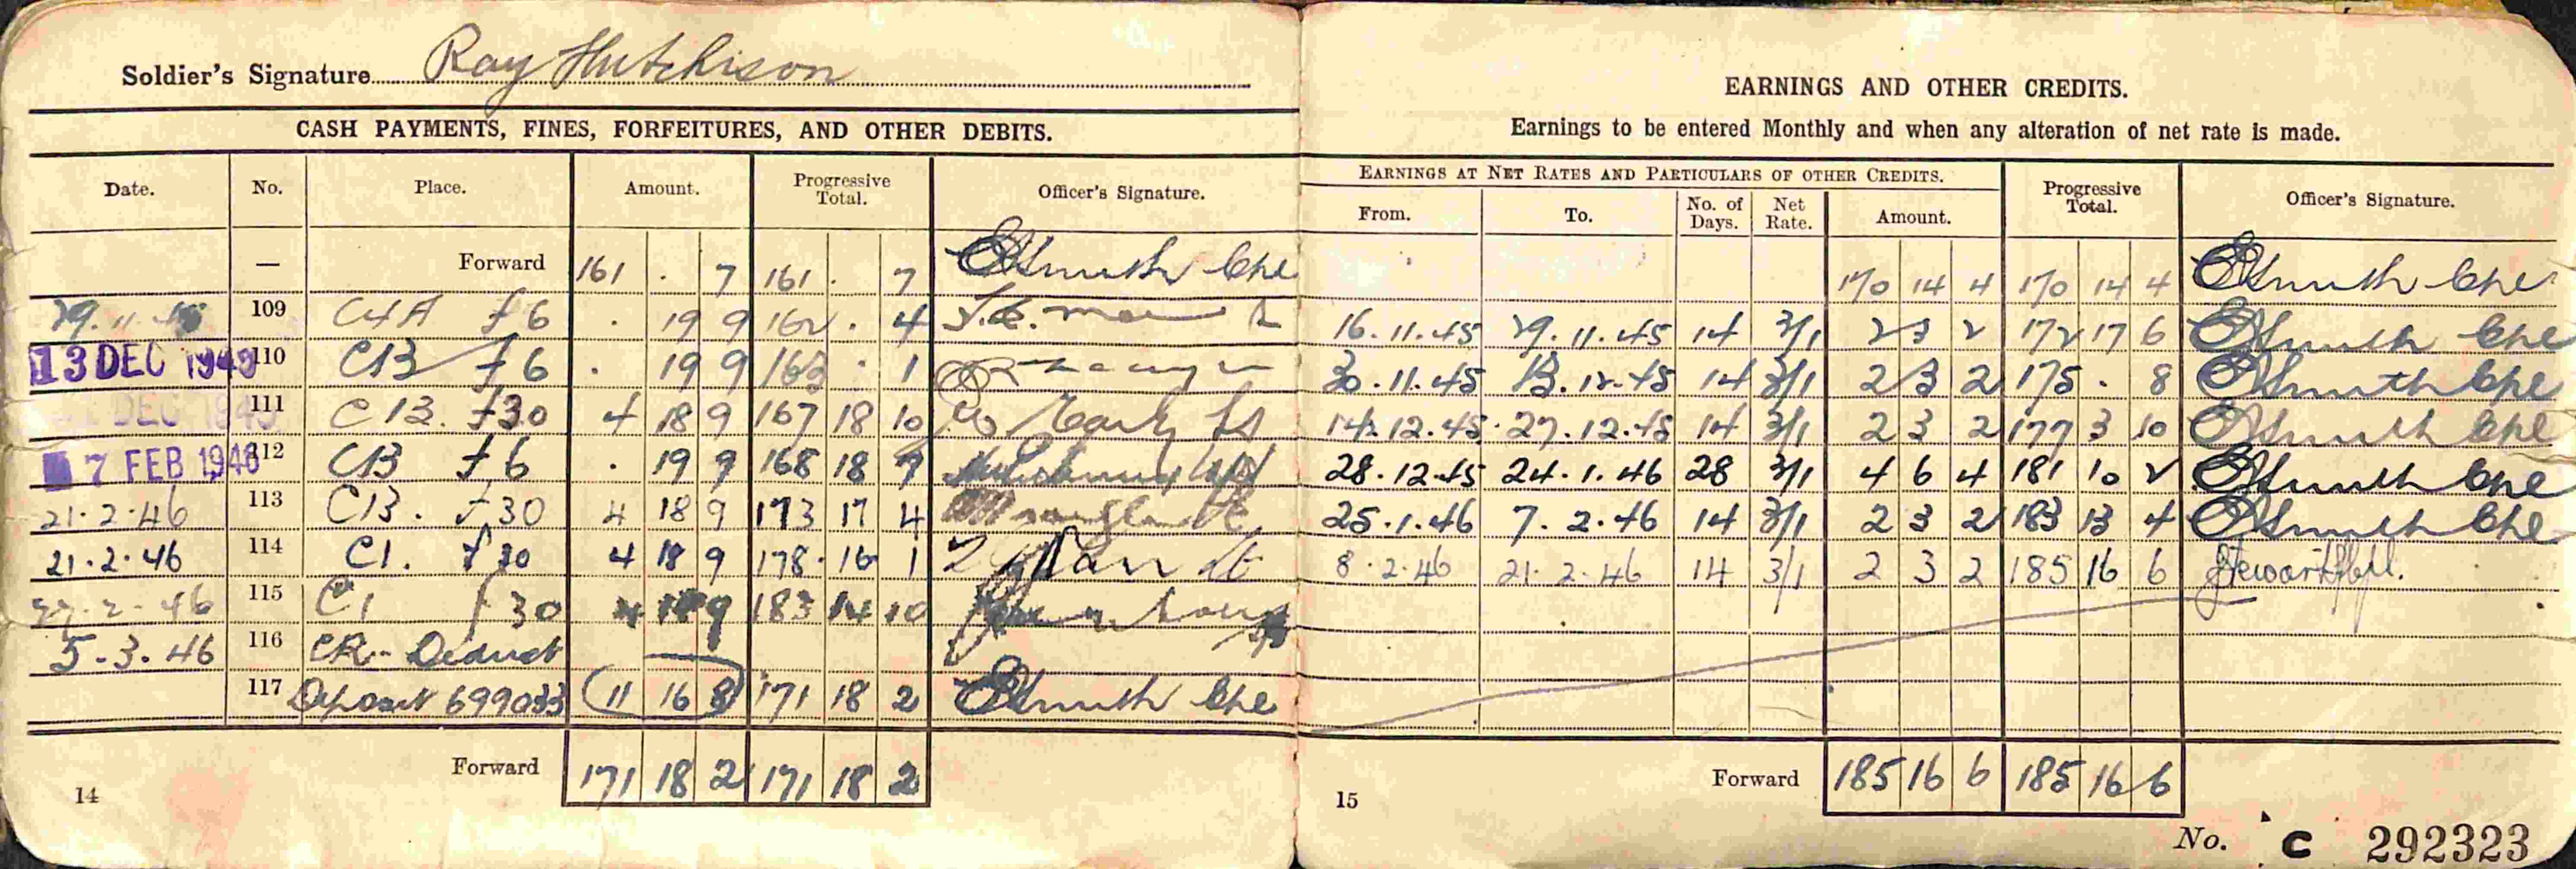 Soldier's Signature Ray Hutchison
CASH PAYMENTS, FINES, FORFEITURES, AND OTHER DEBITS.
Date. No. Place. Amount. Progressive Total. Officer's Signature.
— Forward 161 . 7 161 . 7
29.11.45 109 C4A £6 . 19 9 162 . 4
13 DEC 194 110 C13 £6 . 19 9 163 . 1
DEC 194 111 C13. £30 4 18 9 167 18 10
7 FEB 1946 112 C13 £6 . 19 9 168 18 7
21.2.46 113 C13. £30 4 18 9 173 17 4
21.2.46 114 C1. £30 4 18 9 178 16 1
27.2.46 115 C1 £30 4 18 9 183 14 10
5.3.46 116 CR- Deduct
117 Deposit 699033 (11 16 8) 171 18 2
Forward 171 18 2 171 18 2
14
EARNINGS AND OTHER CREDITS.
Earnings to be entered Monthly and when any alteration of net rate is made.
EARNINGS AT NET RATES AND PARTICULARS OF OTHER CREDITS. Progressive Total. Officer's Signature.
From. To. No. of Days. Net Rate. Amount.
170 14 4 170 14 4
16.11.45 29.11.45 14 3/1 2 3 2 172 17 6
30.11.45 13.12.45 14 3/1 2 3 2 175 . 8
14.12.45 27.12.45 14 3/1 2 3 2 177 3 10
28.12.45 24.1.46 28 3/1 4 6 4 181 10 2
25.1.46 7.2.46 14 3/1 2 3 2 183 13 4
8.2.46 21.2.46 14 3/1 2 3 2 185 16 6
Forward 185 16 6 185 16 6
15
No. C 292323